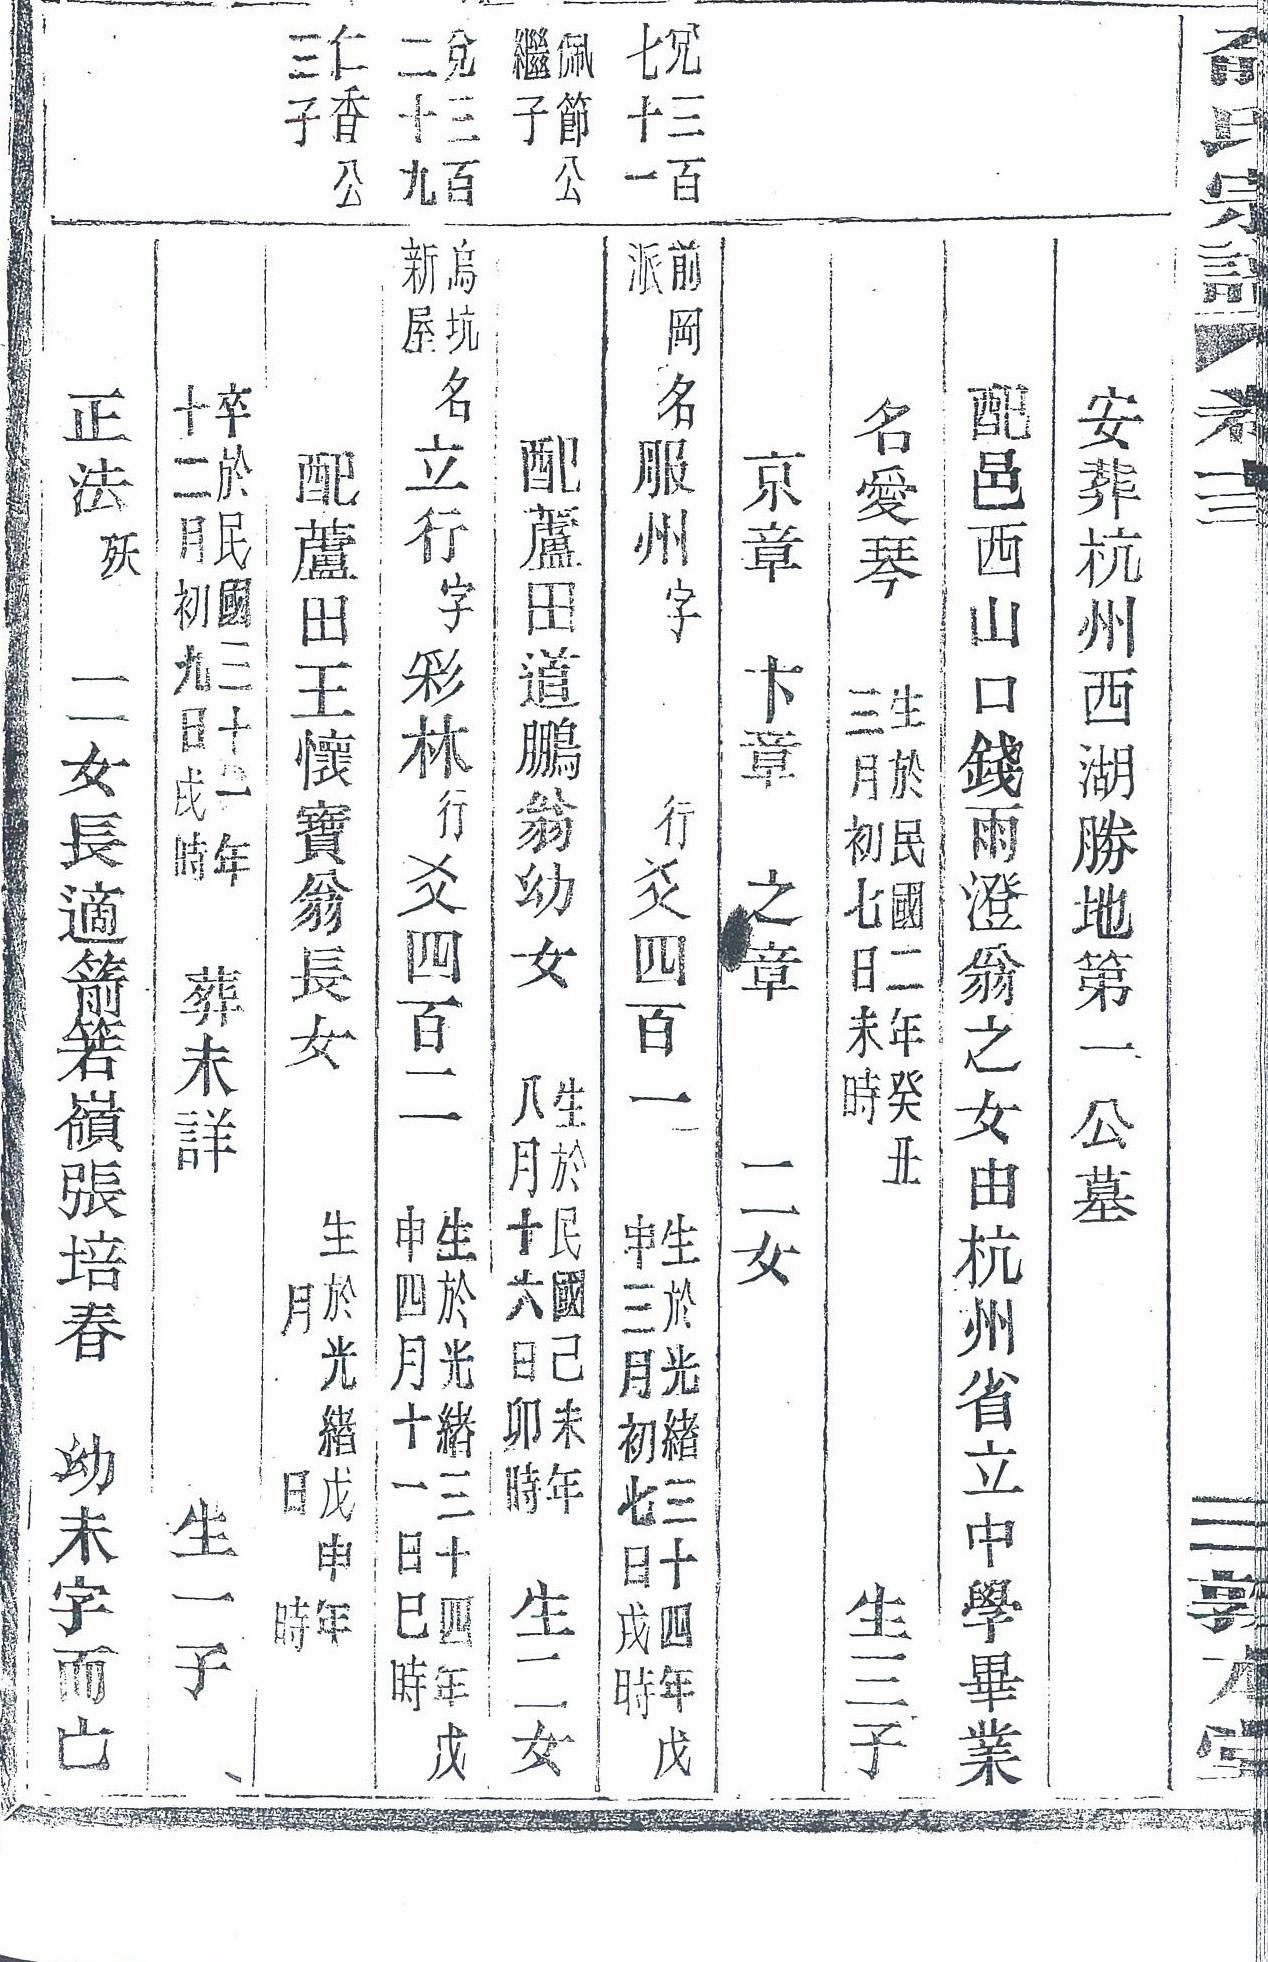 氏宗譜 卷十三 三 敦本堂
安葬杭州西湖勝地第一公墓
配邑西山口錢雨澄翁之女由杭州省立中學畢業
名愛琴 生於民國二年癸丑
三月初七日未時 生三子
京章 卞章 之章 二女
兌三百
七十一
前岡
派
名服州字 行爻四百一 生於光緒三十四年戊
申三月初七日戌時
佩節公
繼子
配蘆田道鵬翁幼女 生於民國己未年
八月十六日卯時 生二女
兌三百
二十九
烏坑
新屋
名立行字彩林行爻四百二 生於光緒三十四年戊
申四月十一日巳時
仁香公
三子
配蘆田王懷寶翁長女 生於光緒戊申年
月 日 時
卒於民國三十二年
十二月初九日戌時 葬未詳 生一子
正法 殀 二女長適箭箬嶺張培春 幼未字而亡